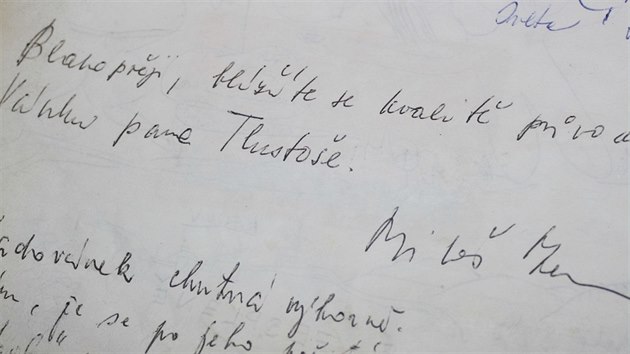 Iveta
Blahopřeji, blížíte se kvalitě původ
Vánku pana Tlustoše.
Miloš Zem
adovánek chutná výborně.
, je se po jeho